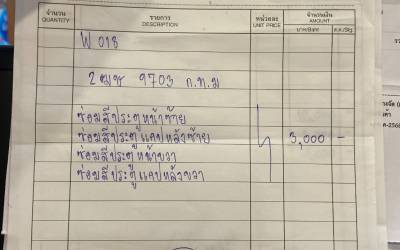 จำนวน
QUANTITY
รายการ
DESCRIPTION
หน่วยละ
UNIT PRICE
จำนวนเงิน
AMOUNT
บาท/Baht
ส.ต./Stg.
W 018
2ฒช 9703 ก.ท.ม
ซ่อมสีประตูหน้าซ้าย
ซ่อมสีประตูแคปหลังซ้าย
3,000 -
ซ่อมสีประตูหน้าขวา
ซ่อมสีประตูแคปหลังขวา